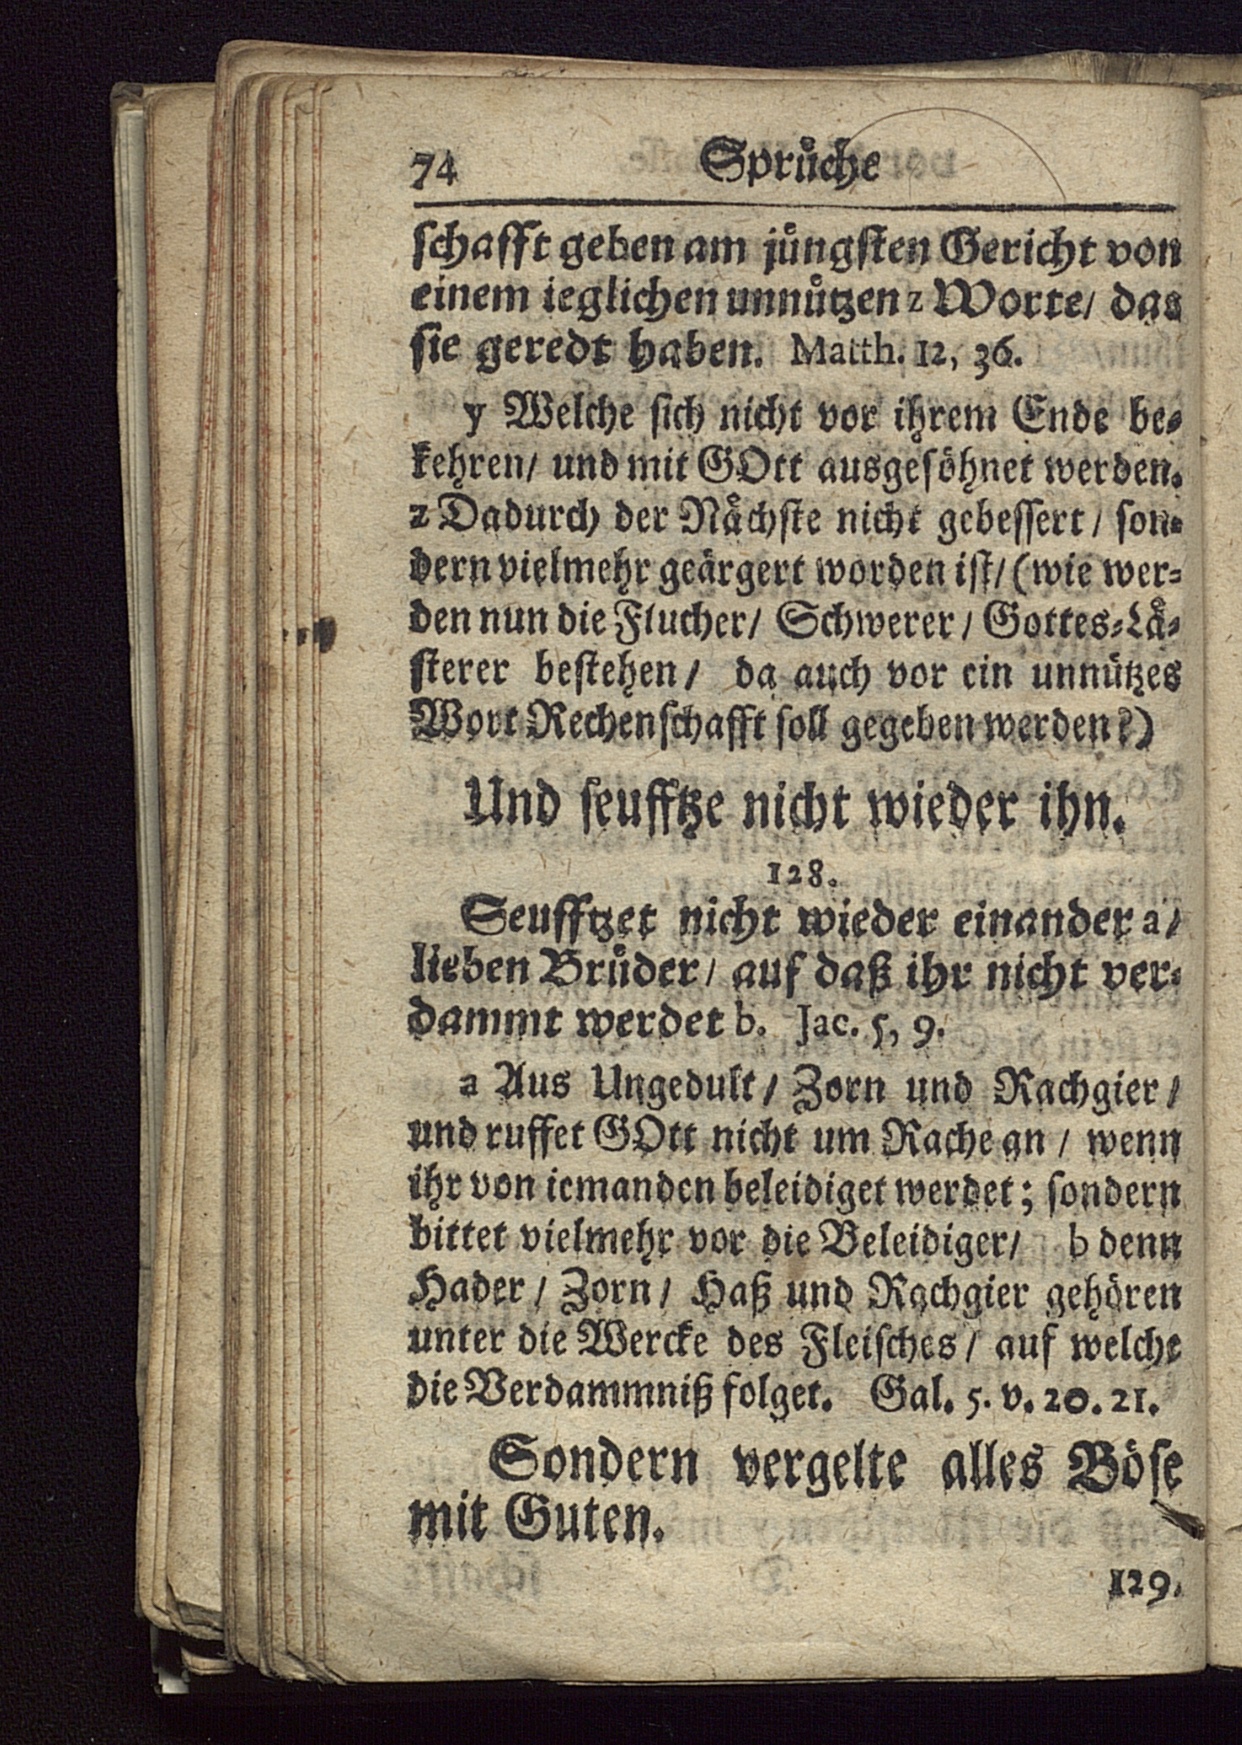 74 Sprůche
schafft geben am jůngsten Gericht von
einem ieglichen unnůtzen z Worte/ das
sie geredt haben. Matth. 12, 36.
y Welche sich nicht vor ihrem Ende be-
kehren/ und mit GOtt ausgesöhnet werden.
z Dadurch der Nåchste nicht gebessert/ son-
dern vielmehr geärgert worden ist/ (wie wer-
den nun die Flucher/ Schwerer/ Gottes-Lå-
sterer bestehen/ da auch vor ein unnützes
Wort Rechenschafft soll gegeben werden?)
Und seufftze nicht wieder ihn.
128.
Seufftzet nicht wieder einander a/
lieben Brůder/ auf daß ihr nicht ver-
dammt werdet b. Jac. 5, 9.
a Aus Ungedult/ Zorn und Rachgier/
und ruffet GOtt nicht um Rache an/ wenn
ihr von iemanden beleidiget werdet; sondern
bittet vielmehr vor die Beleidiger/ b denn
Hader/ Zorn/ Haß und Rachgier gehören
unter die Wercke des Fleisches/ auf welche
die Verdammniß folget. Gal. 5. v. 20. 21.
Sondern vergelte alles Böse
mit Guten.
129.